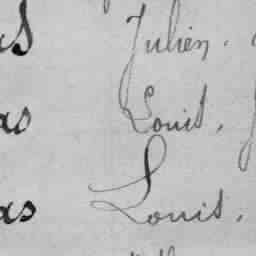 as Julien.
as Louis,
as Louis,